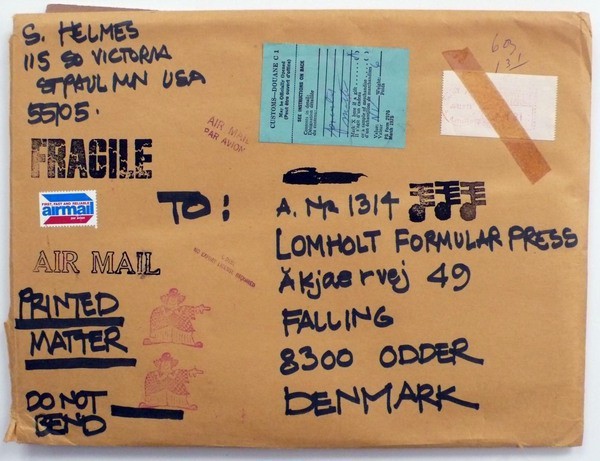 S. HELMES
115 SO VICTORIA
ST PAUL MN USA
55105.
FRAGILE
FIRST, FAST AND RELIABLE
airmail
AIR MAIL
PRINTED
MATTER
DO NOT
BEND
AIR MAIL
PAR AVION
CUSTOMS—DOUANE C 1
May be Officially Opened
(Peut être ouvert d'office)
SEE INSTRUCTIONS ON BACK
609
131
TO:
A. Nr 1314
LOMHOLT FORMULAR PRESS
Åkjaervej 49
FALLING
8300 ODDER
DENMARK